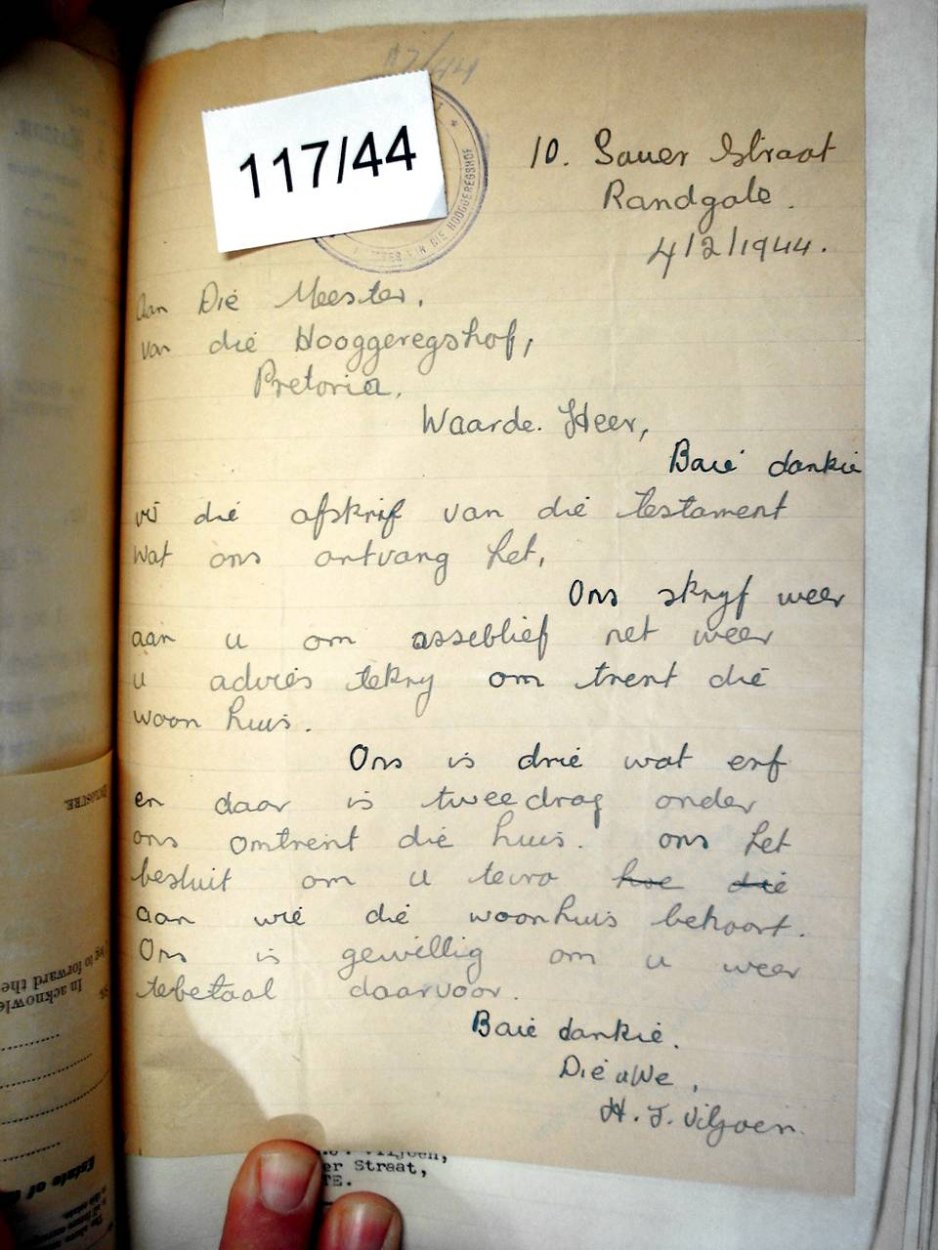 17/44
117/44
DIE HOOGGEREGSHOF
10. Sauer Straat
Randgate.
4/2/1944.
Aan Die Meester,
van die Hooggeregshof,
Pretoria.
Waarde Heer,
Baie dankie
vir die afskrif van die testament
wat ons ontvang het,
Ons skryf weer
aan u om asseblief net weer
u advies tekry om trent die
woon huis.
Ons is drie wat erf
en daar is tweedrag onder
ons omtrent die huis. ons het
besluit om u tevra hoe die
aan wie die woonhuis behoort.
Ons is gewillig om u weer
tebetaal daarvoor.
Baie dankie.
Die uwe,
H. J. Viljoen.
er Straat,
TE.
In acknowle
ng to forward the
Estate of